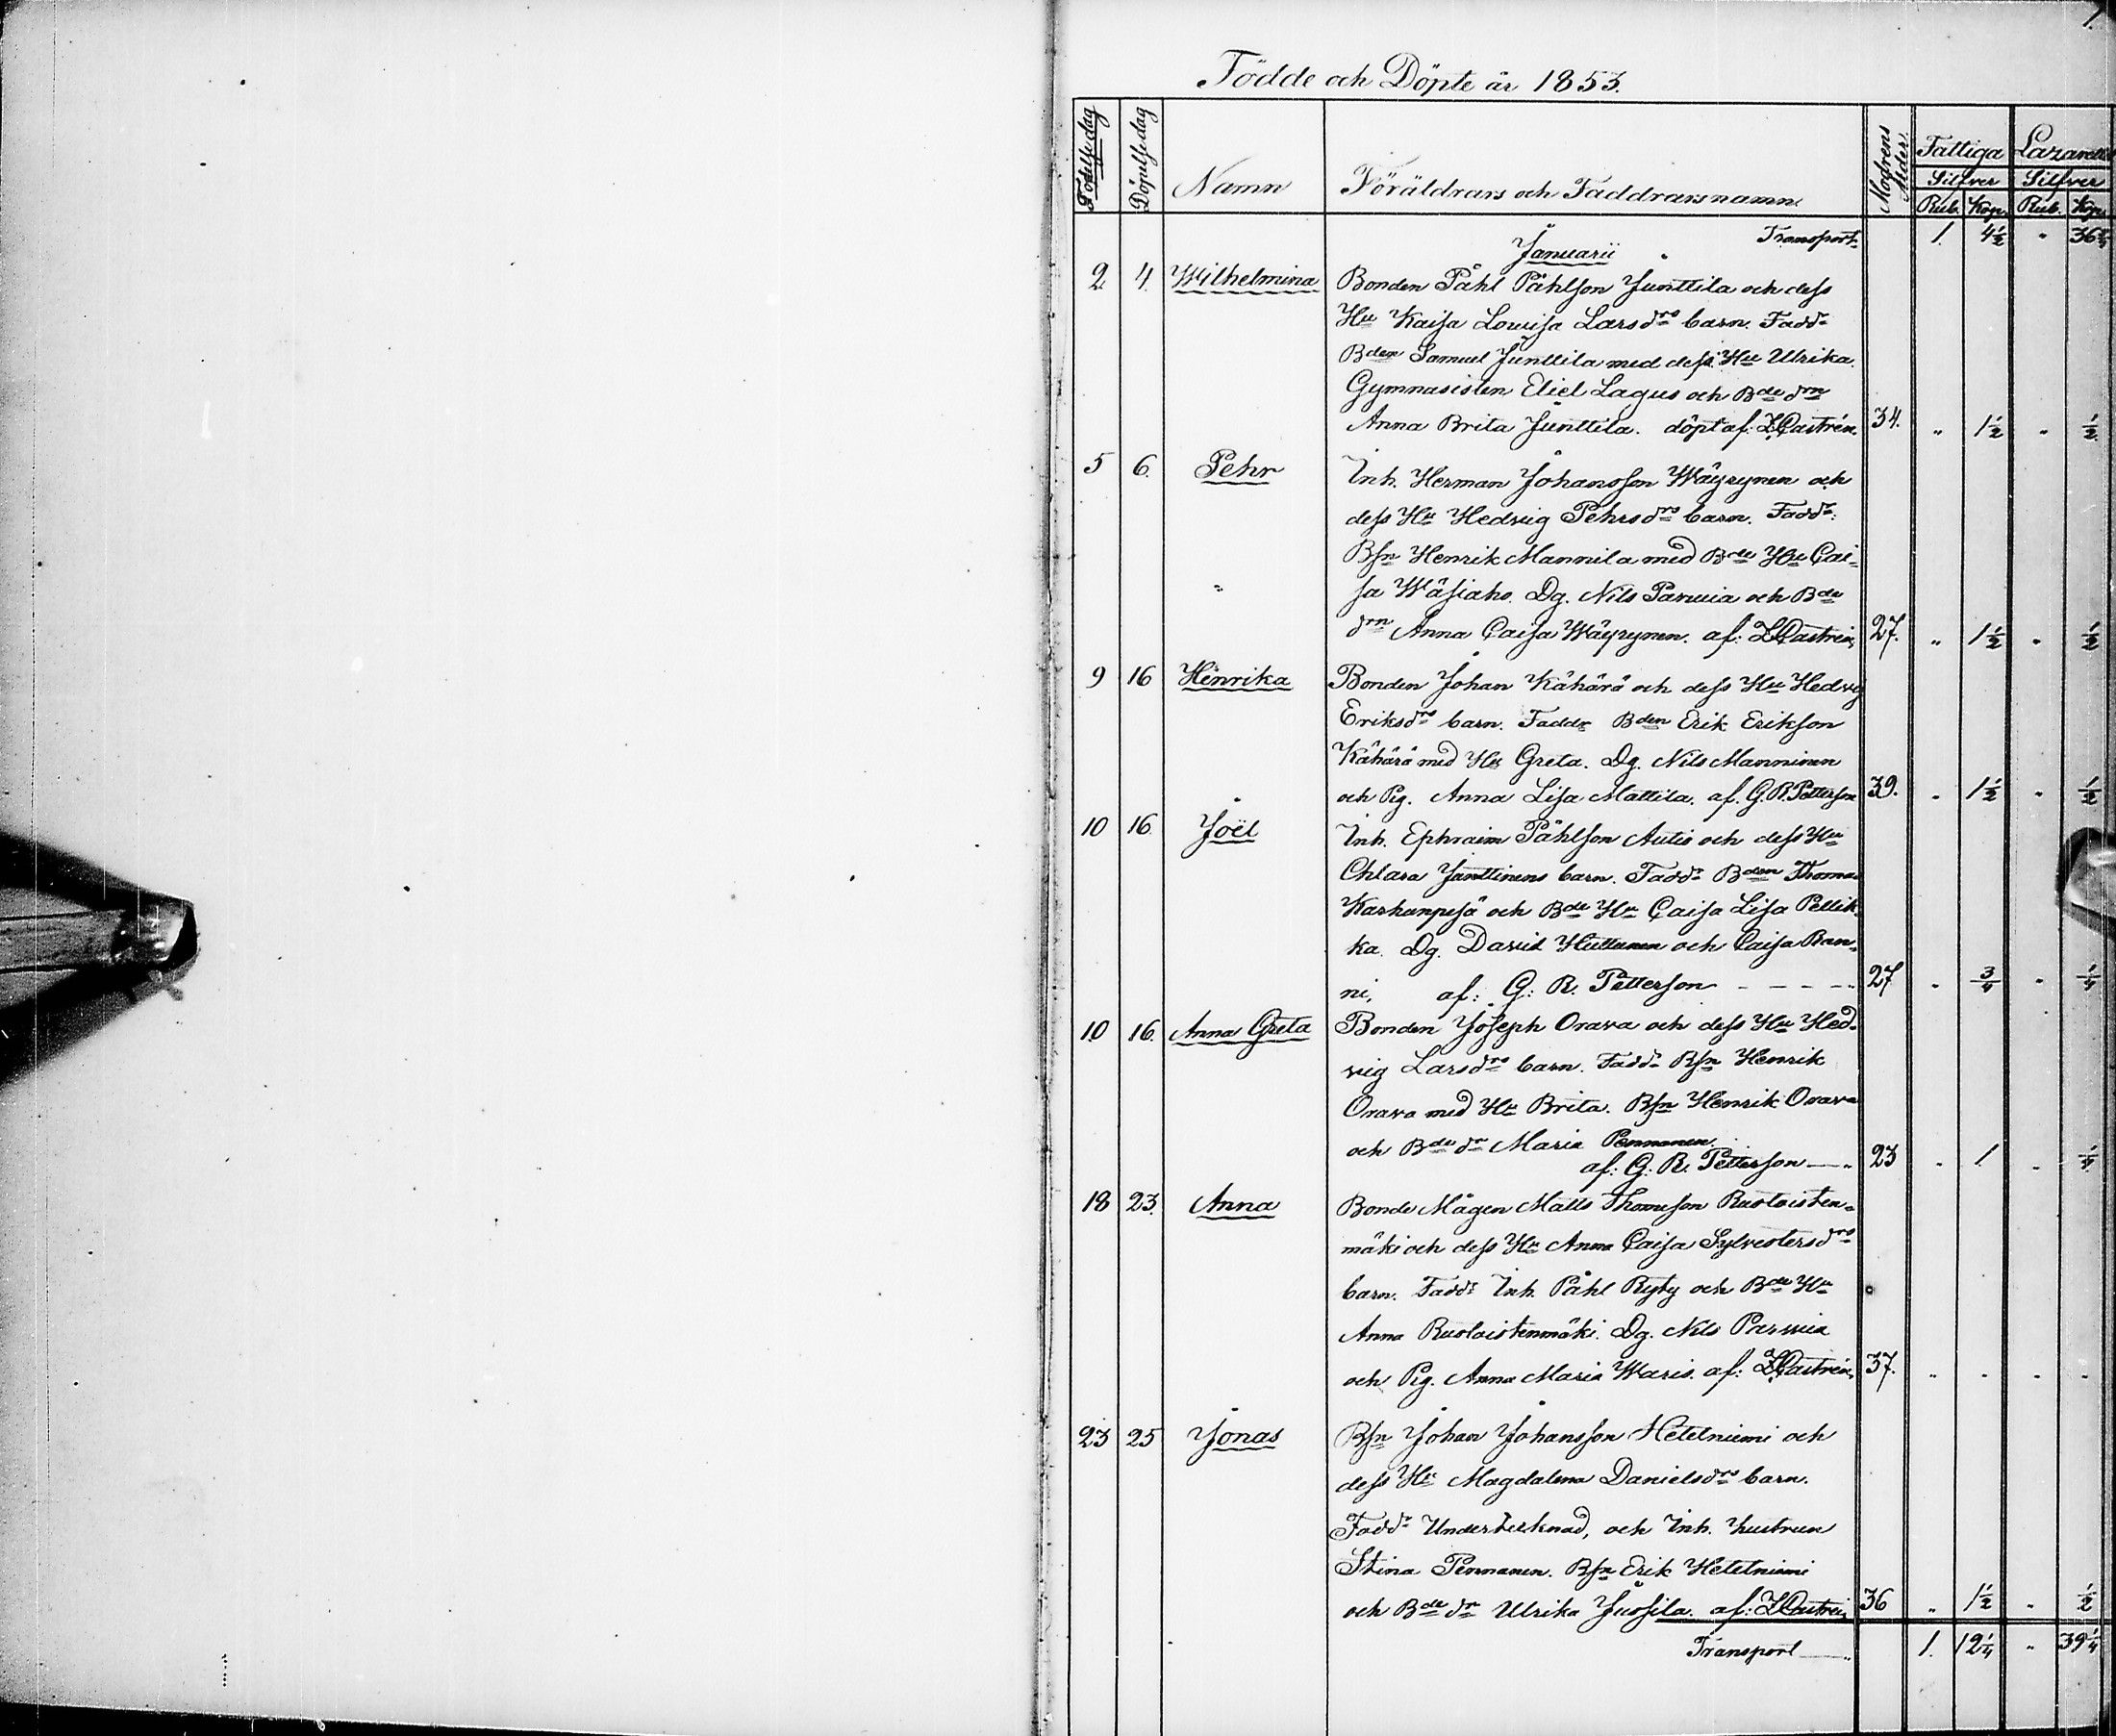 1.
Födde och Döpte år 1853.
Födelsedag Döpelsedag Namn Föräldrars och Faddrars namn Modrens Ålder. Fattiga Lazarettet
Silfver Silfver
Rub. Kop. Rub. Kop.
Januarii Transport 1. 4½ " 36¾
2 4. Wilhelmina Bonden Påhl Påhlson Junttila och dess
Hu Kaisa Lovisa Larsdrs barn. Fadd.
Bden Samuel Junttila med dess Hu Ulrika.
Gymnasisten Eliel Lagus och Bde drn
Anna Brita Junttila. döpt af: Z Castrén. 34. " 1½ " ½
5 6. Pehr Inh. Herman Johansson Wäyrynen och
dess Hu Hedvig Pehrsdrs barn. Faddr:
Bsn Henrik Mannila med Bde Hu Cai-
sa Wäsiaho. Dg. Nils Parvia och Bde
drn Anna Caisa Wäyrynen. af: Z Castrén, 27. " 1½ " ½
9 16 Hinrika Bonden Johan Kähärä och dess Hu Hedvg
Eriksdrs barn. Faddr Bden Erik Erikson
Kähärä med Hu Greta. Dg. Nils Manninen
och Pig. Anna Lisa Mattila. af. G. R. Petterson 39. " 1½ " ½
10 16 Joël Inh. Ephraim Påhlson Autio och dess Hu
Chlara Janttinens barn. Faddr Bden Thomas
Karhunpesä och Bde Hu Caisa Lisa Pellik
ka. Dg. David Huttunen och Caisa Ran-
ni, af: G. R. Petterson - - - - 27 " ¾ " ¼
10 16. Anna Greta Bonden Joseph Orava och dess Hu Hed-
vig Larsdrs barn. Fadd. Bsn Henrik
Orava med Hu Brita. Bsn Henrik Orava
och Bde dr Maria Pennanen.
af: G. R. Petterson 23 " 1 " ¼
18 23. Anna Bonde Mågen Matts Thomeson Ruoloisten-
mäki och dess Hu Anna Caisa Sylvestersdrs
barn. Faddr Inh. Påhl Ryty och Bde Hu
Anna Ruoloistenmäki. Dg. Nils Parvia
och Pig. Anna Maria Waris. af: Z Castrén, 37. " " " "
23 25 Jonas Bsn Johan Johansson Heteniemi och
dess Hu Magdalena Danielsdrs barn.
Faddr Undertecknad, och Inh. hustrun
Stina Pennanen. Bsn Erik Heteniemi
och Bde dr Ulrika Jussila. af: Z Castrén 36 " 1½ " ½
Transport 1. 12¼ " 39¼